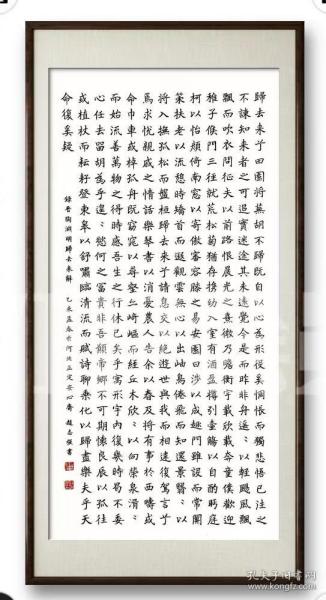 歸去来兮田園將蕪胡不歸既自以心為形役奚惆悵而獨悲悟已往之
不諫知来者之可追實迷途其未遠覺今是而昨非舟遥:以輕颺風飄
飄而吹衣問征夫以前路恨晨光之熹微乃瞻衡宇載欣載奔僮僕歡迎
稚子候門三徑就荒松菊猶存携幼入室有酒盈樽引壺觴以自酌眄庭
柯以怡顔倚南窗以寄傲審容膝之易安園日涉以成趣門雖設而常關
策扶老以流憩時矯首而遐觀雲無心以出岫鳥倦飛而知還景翳:以
將入撫孤松而盤桓歸去来兮請息交以絕遊世與我而相違復駕言兮
焉求悦親戚之情話樂琴書以消憂農人告余以春及將有事於西疇或
命巾車或棹孤舟既窈窕以尋壑亦崎嶇而經丘木欣:以向榮泉涓:
而始流善萬物之得時感吾生之行休已矣乎寓形宇内復幾時曷不委
心任去留胡為乎遑:欲何之富貴非吾願帝鄉不可期懷良辰以孤往
或植杖而耘耔登東皋以舒嘯臨清流而賦詩聊乘化以歸盡樂夫乎天
命復奚疑
錄晋陶淵明歸去来辭
乙未孟春於河北正定安心齋 趙志強書
孔夫子旧书网